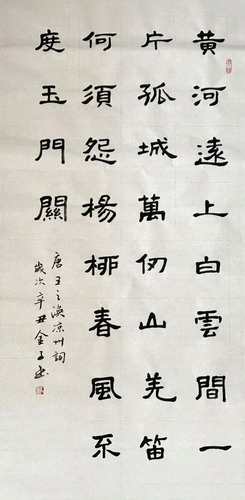 黃河遠上白雲間一
片孤城萬仞山羌笛
何須怨楊柳春風不
度玉門關
唐王之渙涼州詞
歲次辛丑金子書